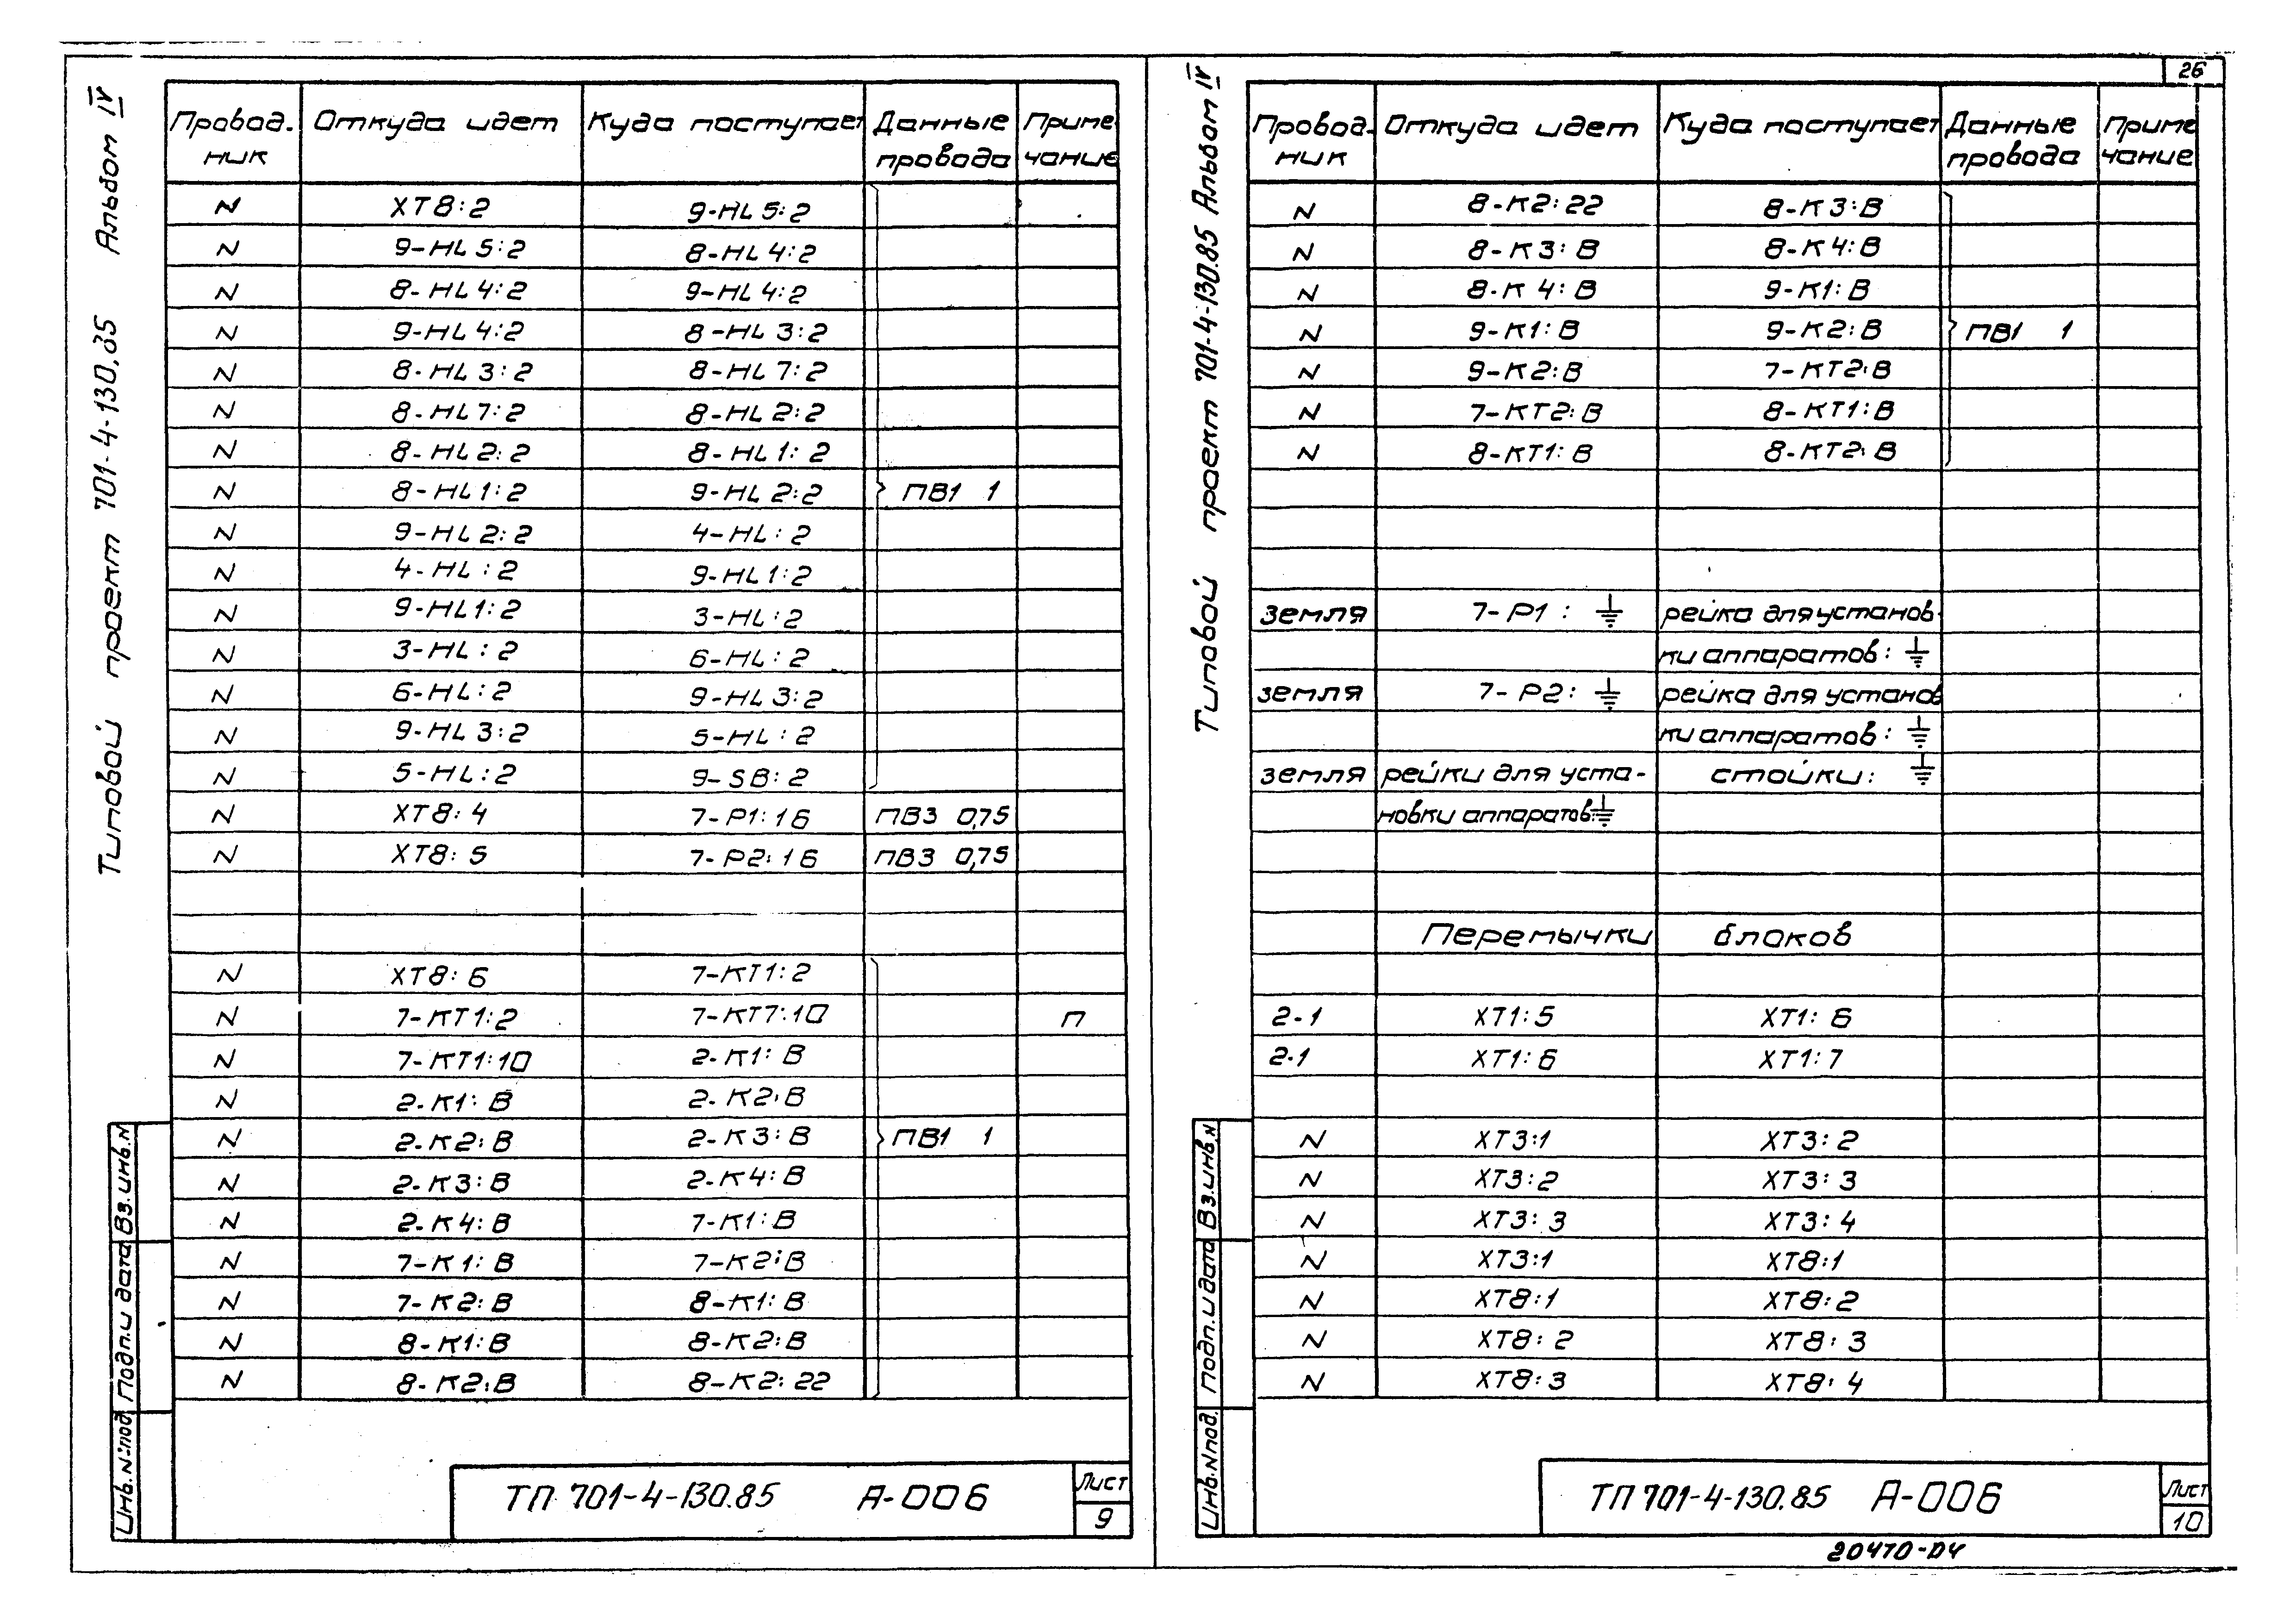 Типовой проект 701-4-130.85 Альбом IV
Провод. Откуда идет Куда поступает Данные Приме
ник провода чание
N XT8:2 9-HL5:2
N 9-HL5:2 8-HL4:2
N 8-HL4:2 9-HL4:2
N 9-HL4:2 8-HL3:2
N 8-HL3:2 8-HL7:2
N 8-HL7:2 8-HL2:2
N 8-HL2:2 8-HL1:2
N 8-HL1:2 9-HL2:2 ПВ1 1
N 9-HL2:2 4-HL:2
N 4-HL:2 9-HL1:2
N 9-HL1:2 3-HL:2
N 3-HL:2 6-HL:2
N 6-HL:2 9-HL3:2
N 9-HL3:2 5-HL:2
N 5-HL:2 9-SB:2
N XT8:4 7-P1:16 ПВ3 0,75
N XT8:5 7-P2:16 ПВ3 0,75
N XT8:6 7-KT1:2
N 7-KT1:2 7-KT7:10 П
N 7-KT1:10 2-K1:B
N 2-K1:B 2-K2:B
N 2-K2:B 2-K3:B ПВ1 1
N 2-K3:B 2-K4:B
N 2-K4:B 7-K1:B
N 7-K1:B 7-K2:B
N 7-K2:B 8-K1:B
N 8-K1:B 8-K2:B
N 8-K2:B 8-K2:22
Инв.N под. Подп.и дата Вз.инв.N
ТП 701-4-130.85 А-006
Лист
9
26
Типовой проект 701-4-130.85 Альбом IV
Провод- Откуда идет Куда поступает Данные Приме
ник провода чание
N 8-K2:22 8-K3:B
N 8-K3:B 8-K4:B
N 8-K4:B 9-K1:B
N 9-K1:B 9-K2:B ПВ1 1
N 9-K2:B 7-KT2:B
N 7-KT2:B 8-KT1:B
N 8-KT1:B 8-KT2:B
земля 7-P1: ⏚ рейка для установ-
ки аппаратов: ⏚
земля 7-P2: ⏚ рейка для установ
ки аппаратов: ⏚
земля рейки для уста- стойки: ⏚
новки аппаратов:⏚
Перемычки блоков
2-1 XT1:5 XT1:6
2-1 XT1:6 XT1:7
N XT3:1 XT3:2
N XT3:2 XT3:3
N XT3:3 XT3:4
N XT3:1 XT8:1
N XT8:1 XT8:2
N XT8:2 XT8:3
N XT8:3 XT8:4
Инв.N под. Подп.и дата Вз.инв.N
ТП 701-4-130.85 А-006
Лист
10
20470-04